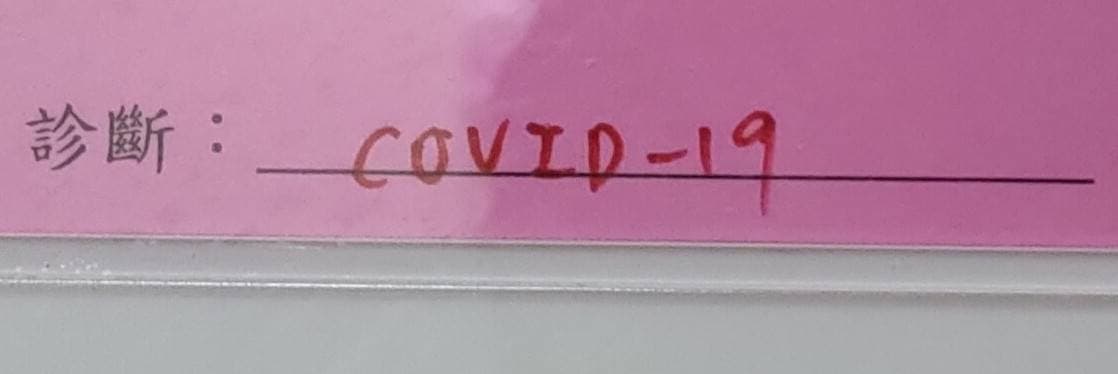 診斷：COVID-19